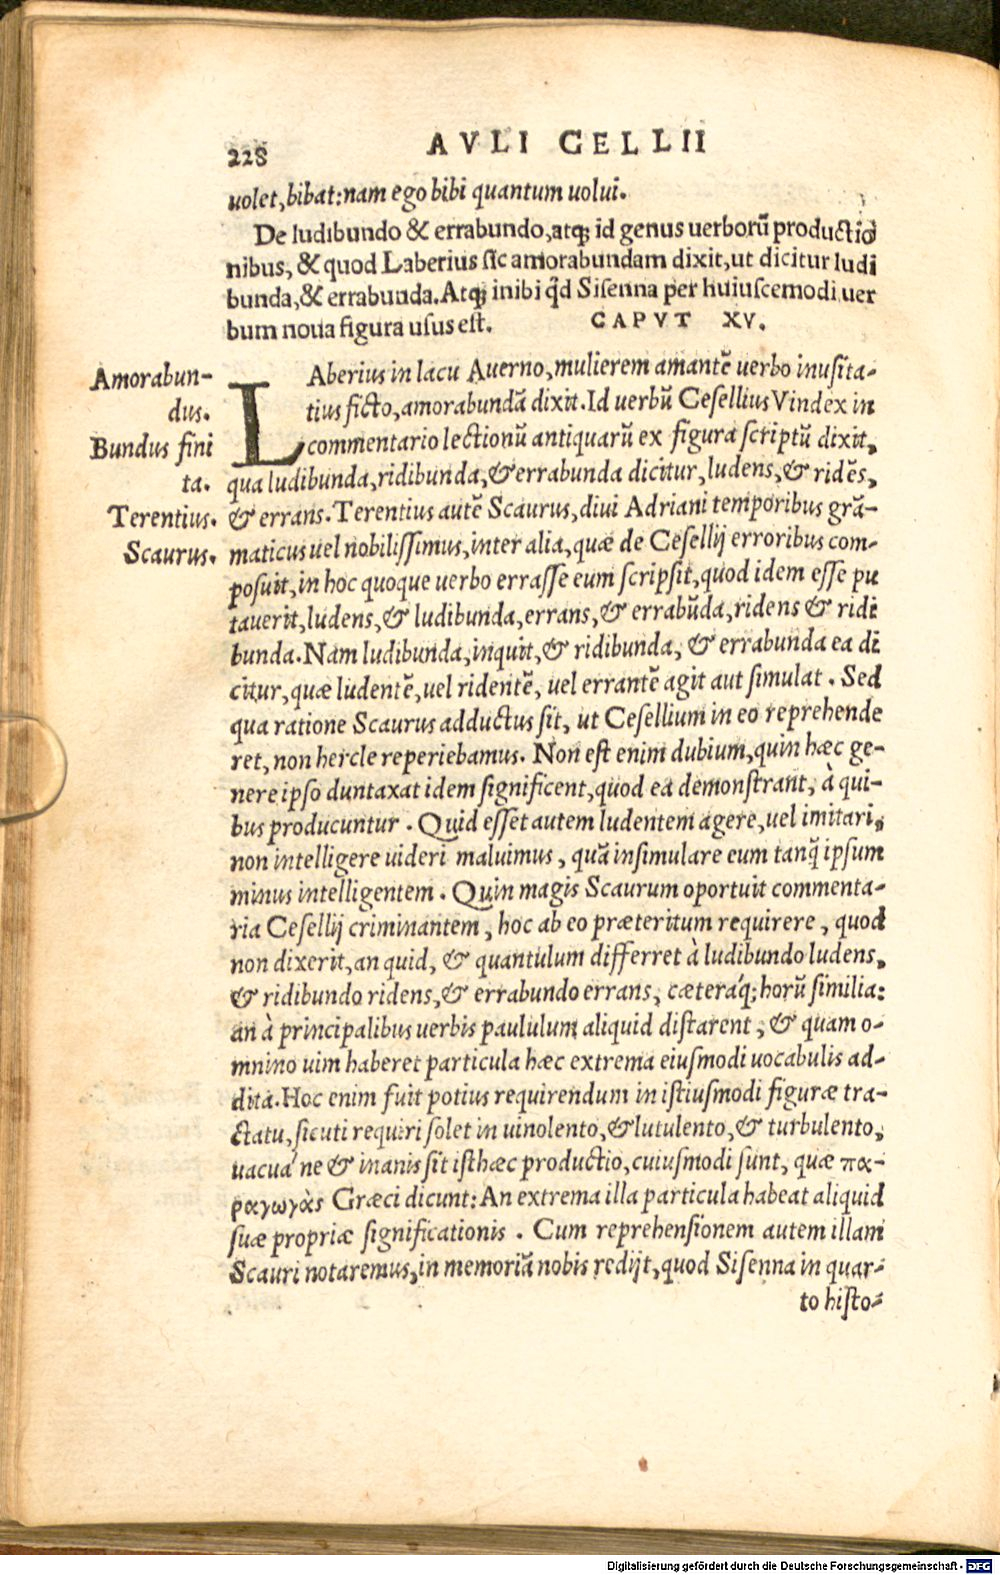 228 AVLI GELLII
uolet, bibat: nam ego bibi quantum uolui.
De ludibundo & errabundo, atq; id genus uerborũ productio
nibus, & quod Laberius sic amorabundam dixit, ut dicitur ludi
bunda, & errabunda. Atq; inibi q̃d Sisenna per huiuscemodi uer
bum noua figura usus est. CAPVT XV.
Amorabun-
dus.
Bundus fini
ta.
Terentius.
Scaurus.
LAberius in lacu Auerno, mulierem amantẽ uerbo inusita-
tius ficto, amorabundã dixit. Id uerbũ Cesellius Vindex in
commentario lectionũ antiquarũ ex figura scriptũ dixit,
qua ludibunda, ridibunda, & errabunda dicitur, ludens, & ridẽs,
& errans. Terentius autẽ Scaurus, diui Adriani temporibus grã-
maticus uel nobilissimus, inter alia, quæ de Cesellij erroribus com-
posuit, in hoc quoque uerbo errasse eum scripsit, quod idem esse pu
tauerit, ludens, & ludibunda, errans, & errabũda, ridens & ridi
bunda. Nam ludibunda, inquit, & ridibunda, & errabunda ea di
citur, quæ ludentẽ, uel ridentẽ, uel errantẽ agit aut simulat. Sed
qua ratione Scaurus adductus sit, ut Cesellium in eo reprehende
ret, non hercle reperiebamus. Non est enim dubium, quin hæc ge-
nere ipso duntaxat idem significent, quod ea demonstrant, à qui-
bus producuntur. Quid esset autem ludentem agere, uel imitari,
non intelligere uideri maluimus, quã insimulare eum tanq̃ ipsum
minus intelligentem. Quin magis Scaurum oportuit commenta-
ria Cesellij criminantem, hoc ab eo præteritum requirere, quod
non dixerit, an quid, & quantulum differret à ludibundo ludens,
& ridibundo ridens, & errabundo errans, cæteráq; horũ similia:
an à principalibus uerbis paululum aliquid distarent, & quam o-
mnino uim haberet particula hæc extrema eiusmodi uocabulis ad-
dita. Hoc enim fuit potius requirendum in istiusmodi figuræ tra-
ctatu, sicuti requiri solet in uinolento, & lutulento, & turbulento,
uacua'ne & inanis sit isthæc productio, cuiusmodi sunt, quæ πα-
ραγωγὰς Græci dicunt: An extrema illa particula habeat aliquid
suæ propriæ significationis. Cum reprehensionem autem illam
Scauri notaremus, in memoriã nobis redijt, quod Sisenna in quar-
to histo-
Digitalisierung gefördert durch die Deutsche Forschungsgemeinschaft - DFG